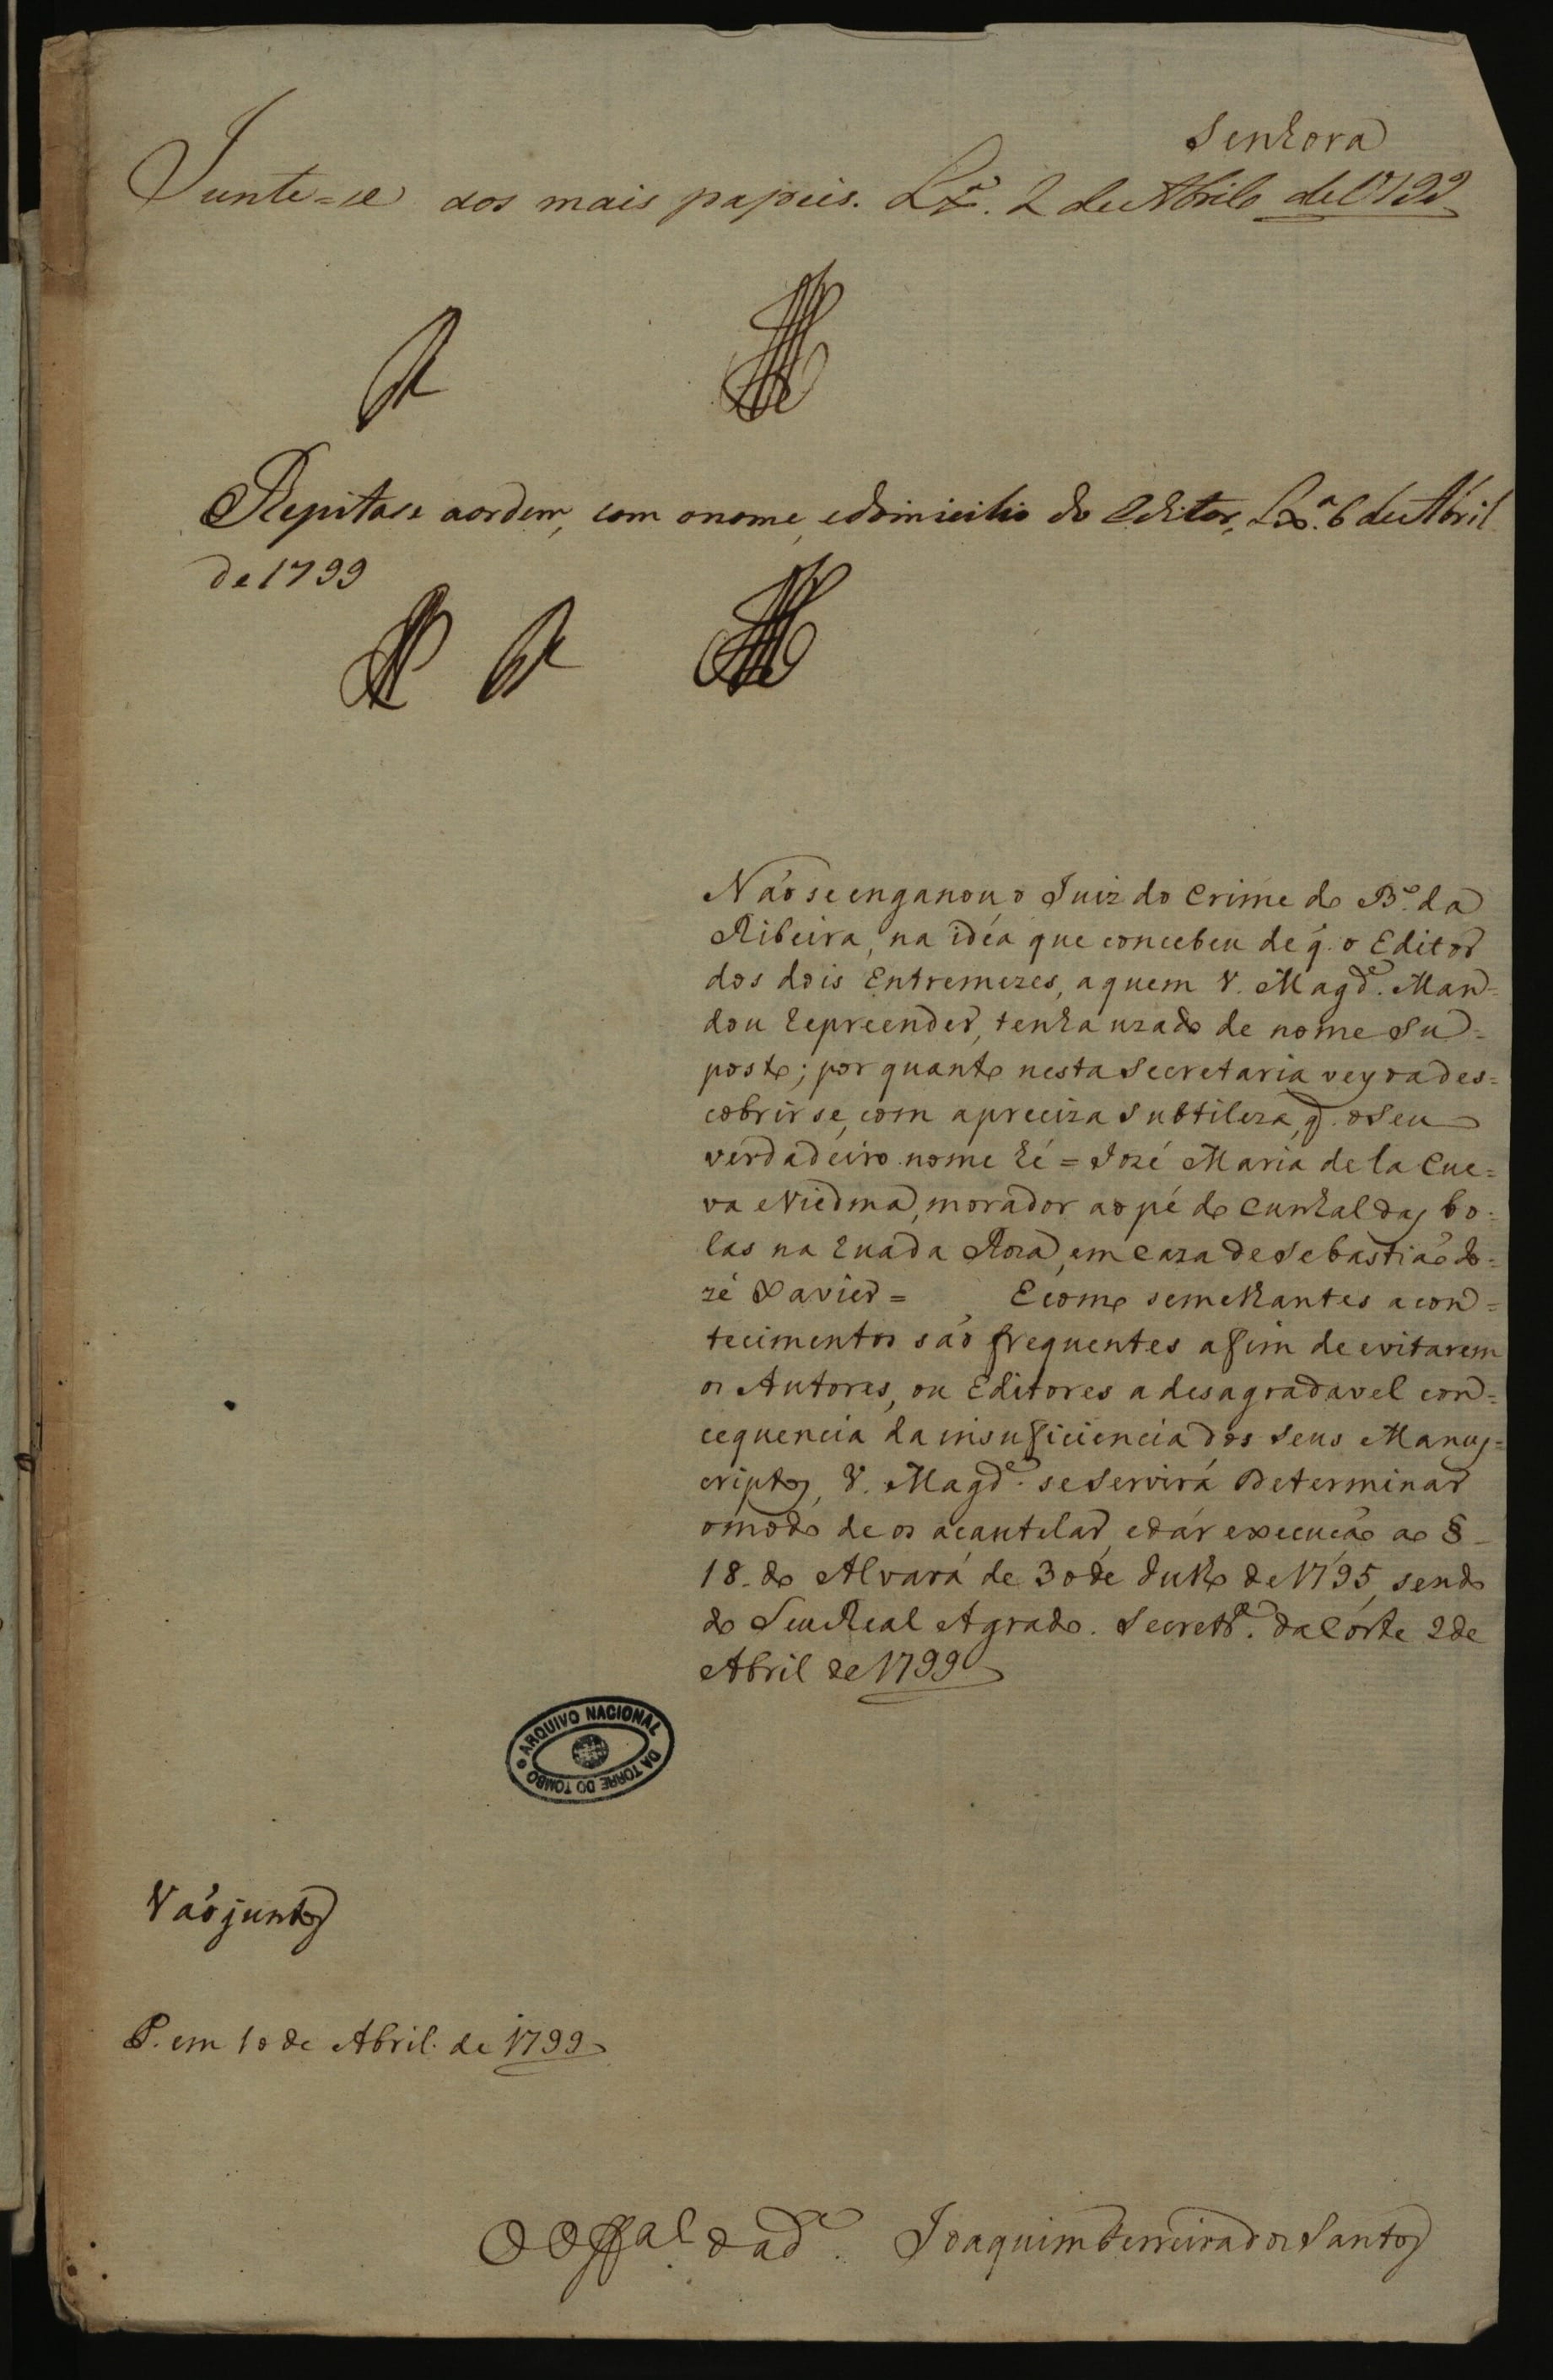 Senhora
Junte-se aos mais papeis. Lx.ª 2 de Abril de 1799
Repitase aordem, com onome, edomicilio do Editor, Lx.ª 6 de Abril
de 1799
Não se enganou o Juiz do Crime do B.º da
Ribeira, na idéa que concebeu de q. o Editor
dos dois Entremezes, aquem V. Magd.e Man=
dou reprender, tenha uzado de nome Su=
posto; por quanto nesta Secretaria veyo a des=
cobrir se, com apreciza Subtileza, q. oSeu
verdadeiro nome hé = José Maria de la Cue=
va Viedma, morador aopé do Cunhal das bo=
las na rua da Roza, em caza de Sebastião Jo=
zé Xavier = E como semelhantes acon=
tecimentos são frequentes afim de evitarem
os Autores, ou Editores a desagradavel con=
cequencia da insuficiencia dos Seus Manus=
criptos, V. Magd.e se Servirá Determinar
omodo de os acautelar, edár execução ao §
18. do Alvará de 30 de Julho de 1795, sendo
do Seu Real Agrado. Secret.ª da Côrte 2 de
Abril de 1799
ARQUIVO NACIONAL DA TORRE DO TOMBO
Vão juntos
P. em 10 de Abril de 1799
O Offal da d.e Joaquim Ferreira dos Santos